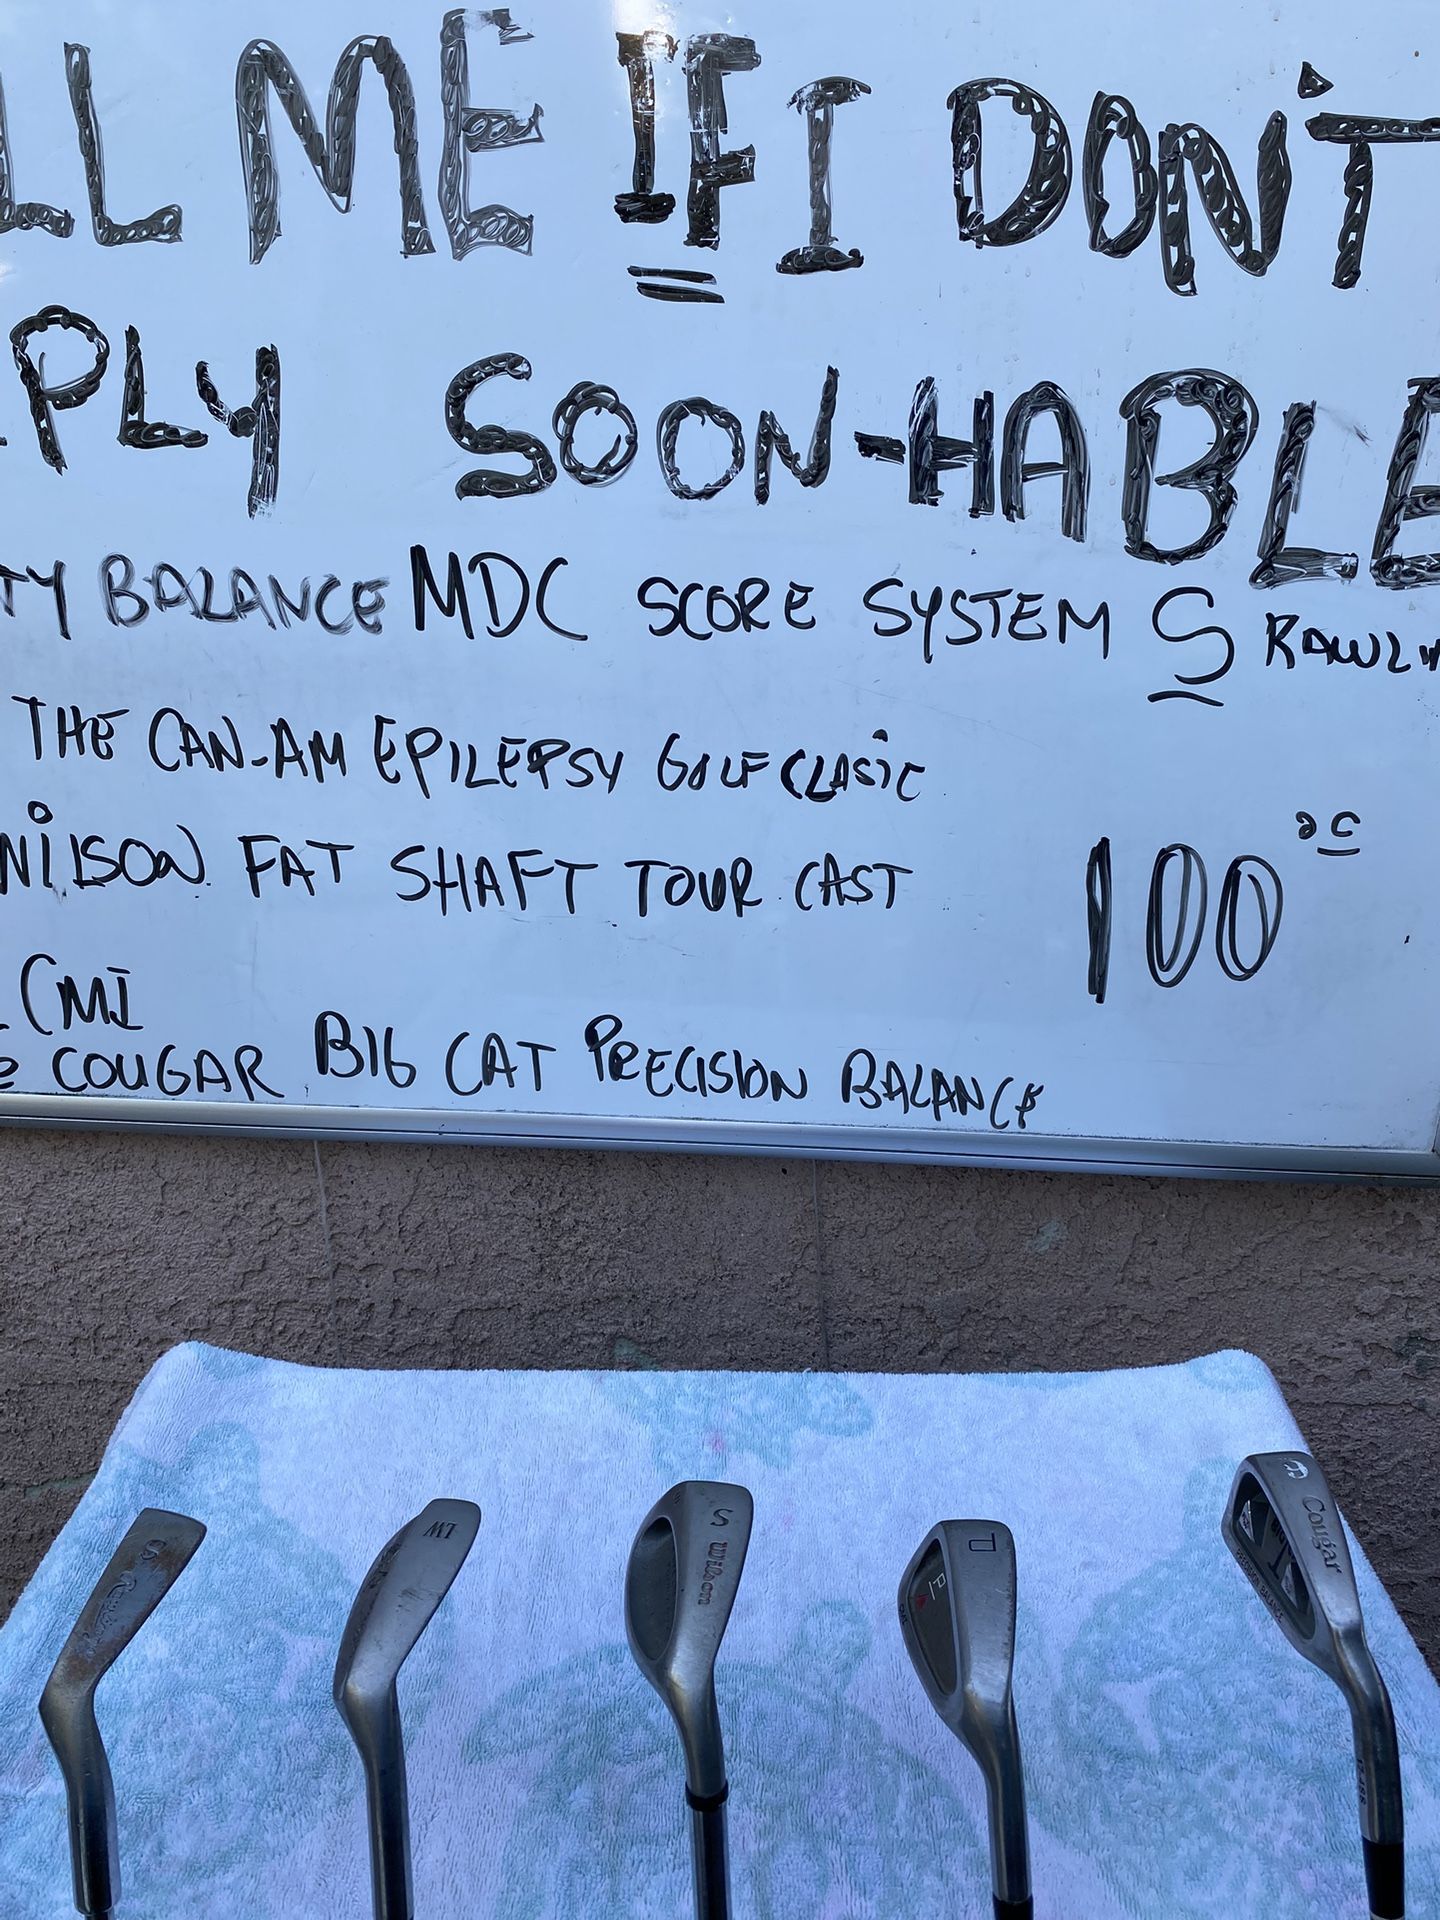 LL ME IF I DON'T
PLY SOON-HABLE
TY BALANCE MDC SCORE SYSTEM S RAWLIN
THE CAN-AM EPILEPSY GOLF CLASIC
WILSON FAT SHAFT TOUR CAST
100
CMI
COUGAR BIG CAT PRECISION BALANCE
LW
S Wilson
P
Cougar
PRECISION BALANCE